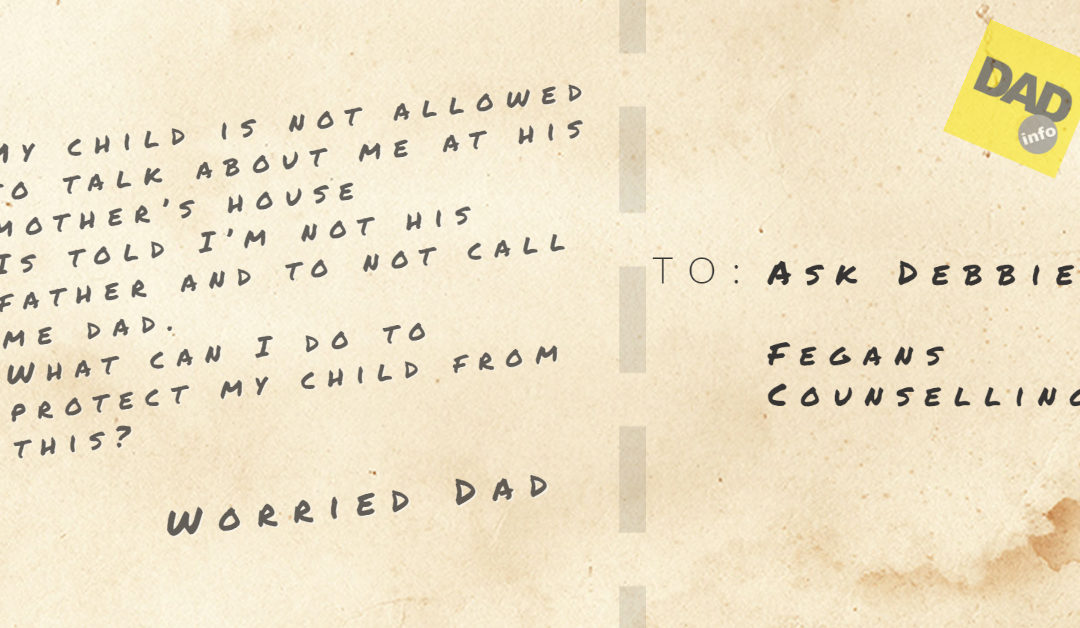 MY CHILD IS NOT ALLOWED
TO TALK ABOUT ME AT HIS
MOTHER'S HOUSE
IS TOLD I'M NOT HIS
FATHER AND TO NOT CALL
ME DAD.
WHAT CAN I DO TO
PROTECT MY CHILD FROM
THIS?
WORRIED DAD
DAD
info
TO: ASK DEBBIE
FEGANS
COUNSELLING